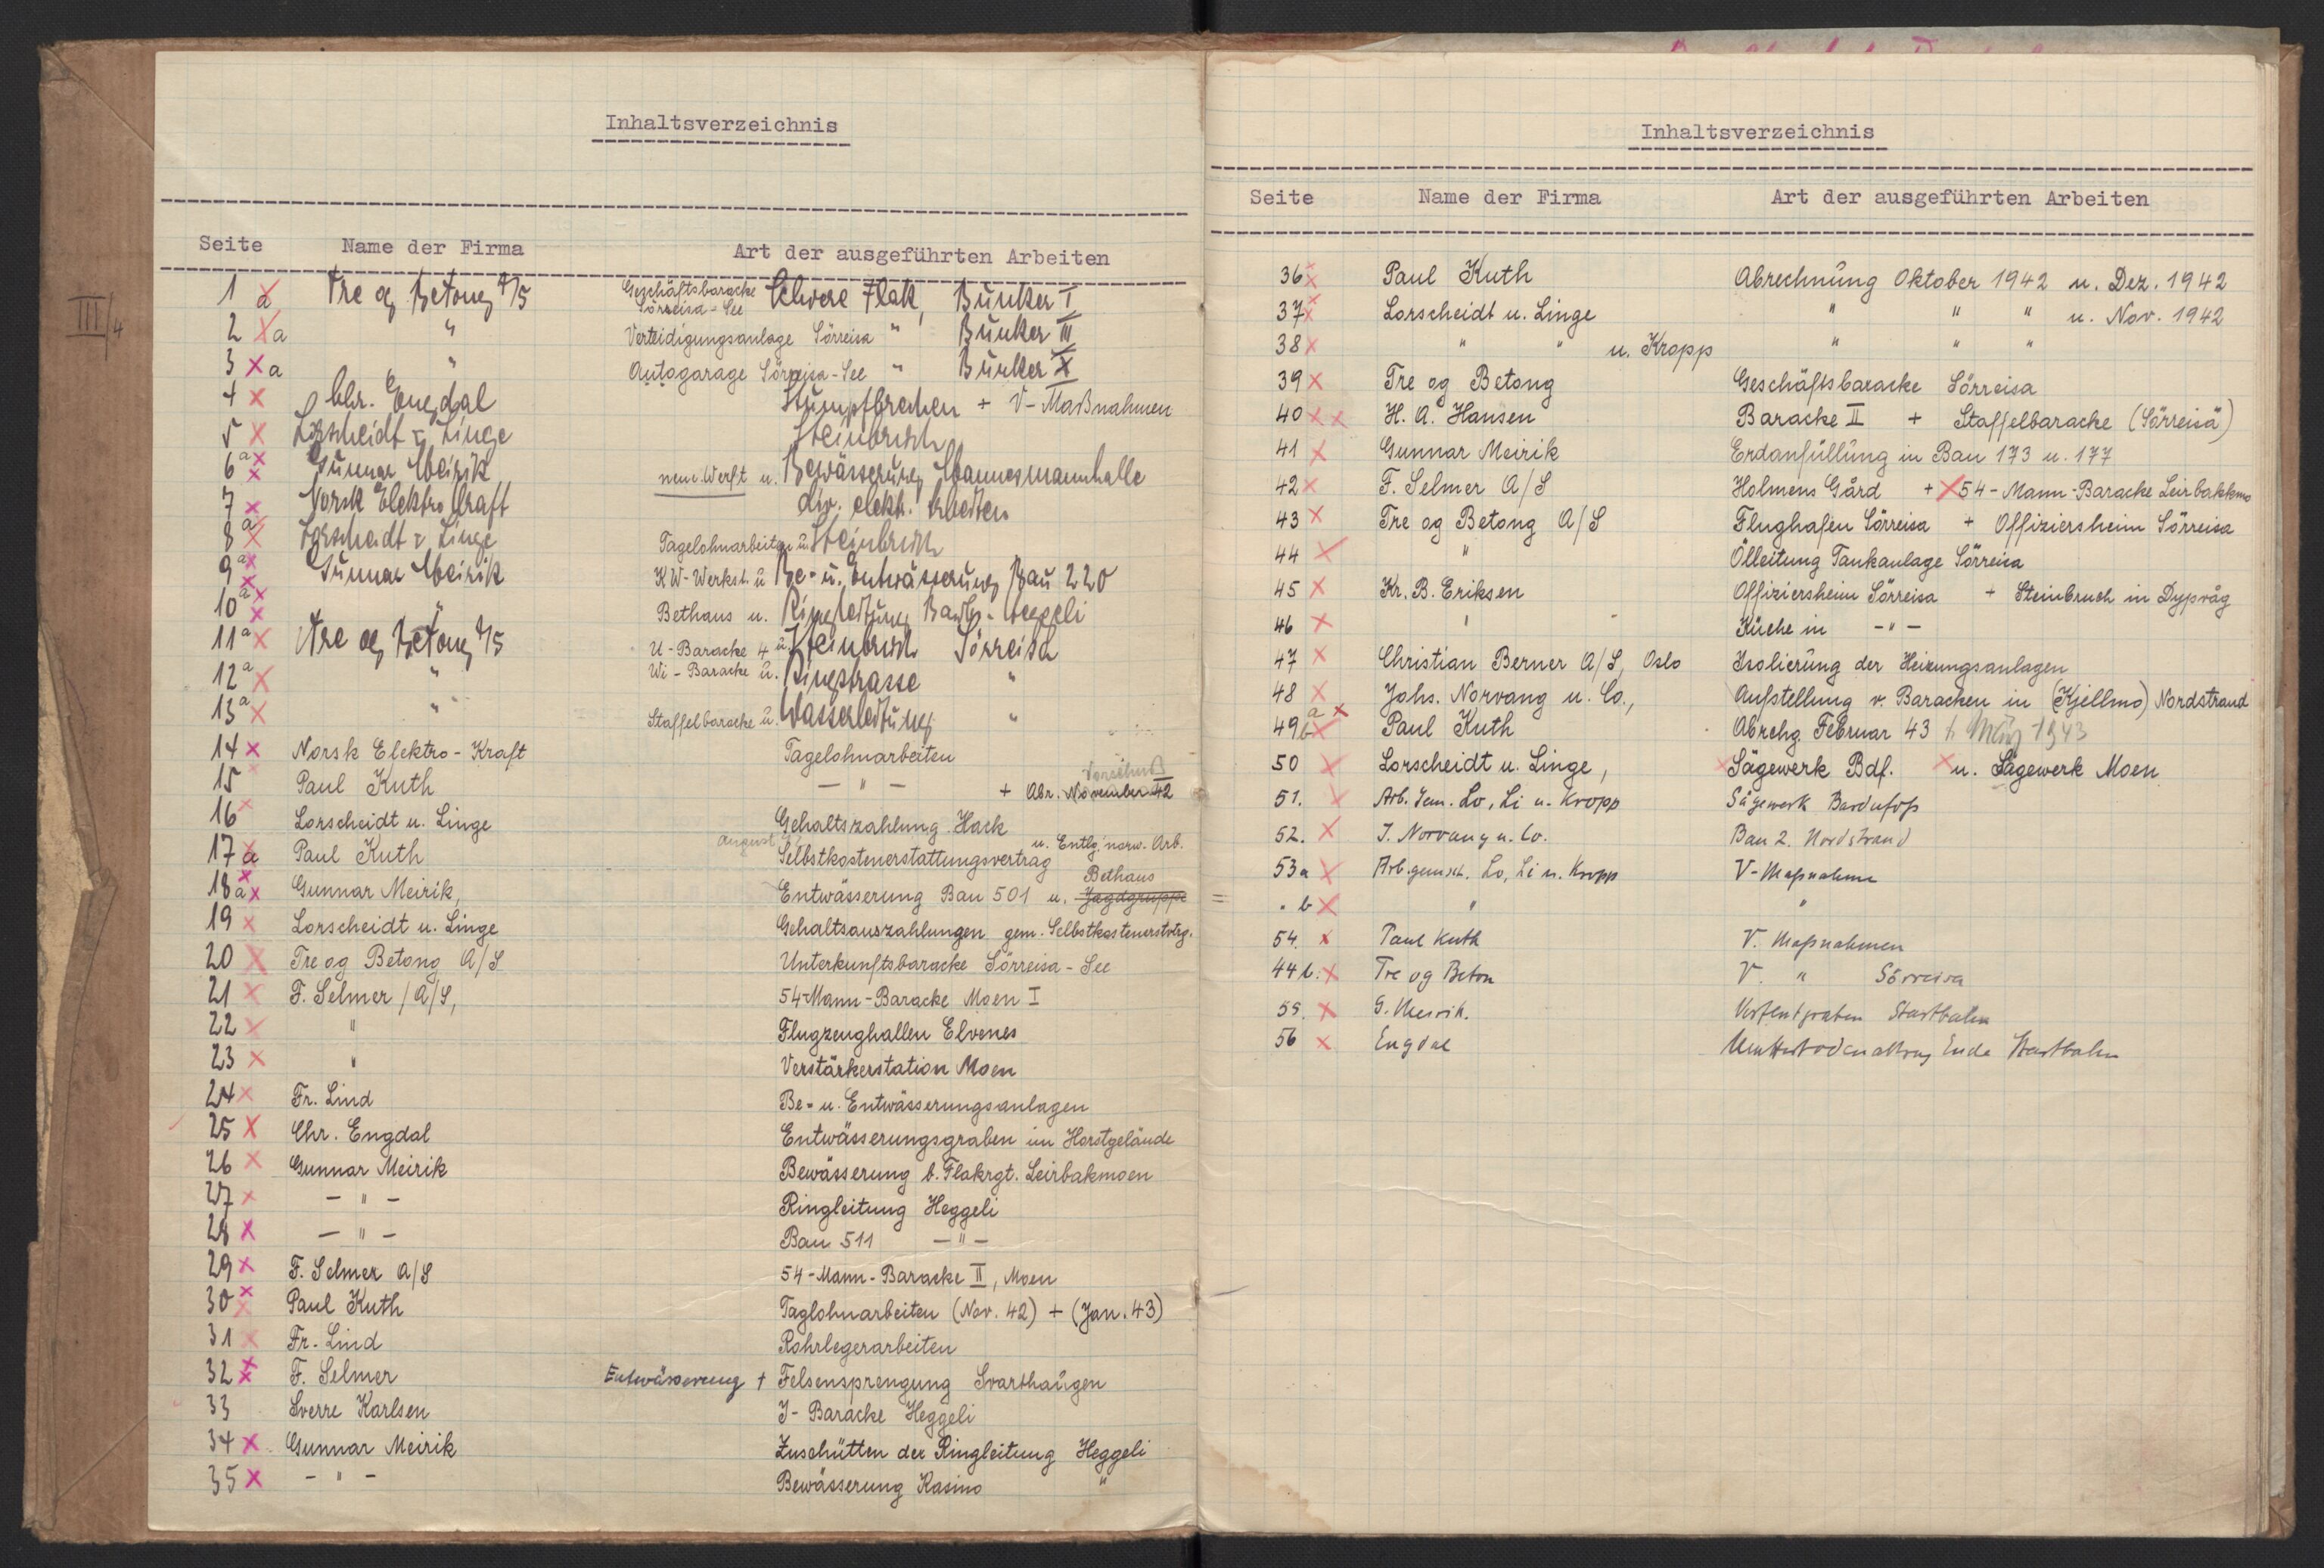 III/4
Inhaltsverzeichnis
Seite Name der Firma Art der ausgeführten Arbeiten
1 a Tre og Betong A/S Geschäftsbaracke Sörreisa-See Schwere Flak, Bunker I
2 a " Verteidigungsanlage Sörreisa " Bunker III
3 a " Autogarage Sörreisa-See " Bunker X
4 Chr. Engdal + V-Maßnahmen
5 Lorscheidt u. Linge Steinbruch
6 a Gunnar Meirik neue Werft u. Bewässerung Mannesmannhalle
7 Norsk Elektro Kraft div. elektr. Arbeiten
8 a Lorscheidt u. Linge Tagelohnarbeiten u. Steinbruch
9 a Gunnar Meirik KW-Werkst. u. Be- u. Entwässerung Bau 220
10 a " Bethaus u. Ringleitung Heggeli
11 a Tre og Betong A/S U-Baracke 4 u. Steinbruch Sörreisa
12 a " Wi-Baracke u. Ringstrasse "
13 a " Staffelbaracke u. Wasserleitung "
14 Norsk Elektro-Kraft Tagelohnarbeiten
15 Paul Kuth — " — + Abr. November 42 Vorschuß
16 Lorscheidt u. Linge Gehaltszahlung Hack
17 a Paul Kuth August Selbstkostenerstattungsvertrag u. Entlg. norw. Arb.
18 a Gunnar Meirik, Entwässerung Bau 501 u. Jagdgruppe Bethaus
19 Lorscheidt u. Linge Gehaltsauszahlungen gem. Selbstkostenerstvtrg.
20 Tre og Betong A/S Unterkunftsbaracke Sörreisa-See
21 F. Selmer / A/S, 54-Mann-Baracke Moen I
22 " Flugzeughallen Elvenes
23 " Verstärkerstation Moen
24 Fr. Lind Be- u. Entwässerungsanlagen
25 Chr. Engdal Entwässerungsgraben im Horstgelände
26 Gunnar Meirik Bewässerung b. Flakrgt. Leirbakmoen
27 — " — Ringleitung Heggeli
28 — " — Bau 511 — " —
29 F. Selmer A/S 54-Mann-Baracke II, Moen
30 Paul Kuth Taglohnarbeiten (Nov. 42) + (Jan. 43)
31 Fr. Lind Rohrlegerarbeiten
32 F. Selmer Entwässerung + Felsensprengung Svarthaugen
33 Sverre Karlsen J-Baracke Heggeli
34 Gunnar Meirik Zuschütten der Ringleitung Heggeli
35 — " — Bewässerung Kasino "
Inhaltsverzeichnis
Seite Name der Firma Art der ausgeführten Arbeiten
36 Paul Kuth Abrechnung Oktober 1942 u. Dez. 1942
37 Lorscheidt u. Linge " " " u. Nov. 1942
38 " " u. Kropp " " "
39 Tre og Betong Geschäftsbaracke Sörreisa
40 H. A. Hansen Baracke II + Staffelbaracke (Sörreisa)
41 Gunnar Meirik Erdanfüllung in Bau 173 u. 177
42 F. Selmer A/S Holmens Gård + 54-Mann-Baracke Leirbakkmo
43 Tre og Betong A/S Flughafen Sörreisa + Offiziersheim Sörreisa
44 " Ölleitung Tankanlage Sörreisa
45 Kr. B. Eriksen Offiziersheim Sörreisa + Steinbruch in Dypvåg
46 " Küche in — " —
47 Christian Berner A/S, Oslo Isolierung der Heizungsanlagen
48 Johs. Norvang u. Co., Aufstellung v. Baracken in (Kjellmo) Nordstrand
49 a b Paul Kuth Abrchg. Februar 43 + März 1943
50 Lorscheidt u. Linge, Sägewerk Bdf. u. Sägewerk Moen
51. Arb. Gem. Lo, Li u. Kropp Sägewerk Bardufoss
52. J. Norvang u. Co. Bau 2. Nordstrand
53a Arb.gemsch. Lo, Li u. Kropp V-Maßnahme
" b " "
54. Paul Kuth V. Maßnahmen
44 b. Tre og Beton V. " Sörreisa
55. G. Meirik. Startbahn
56 Engdal Ende Startbahn